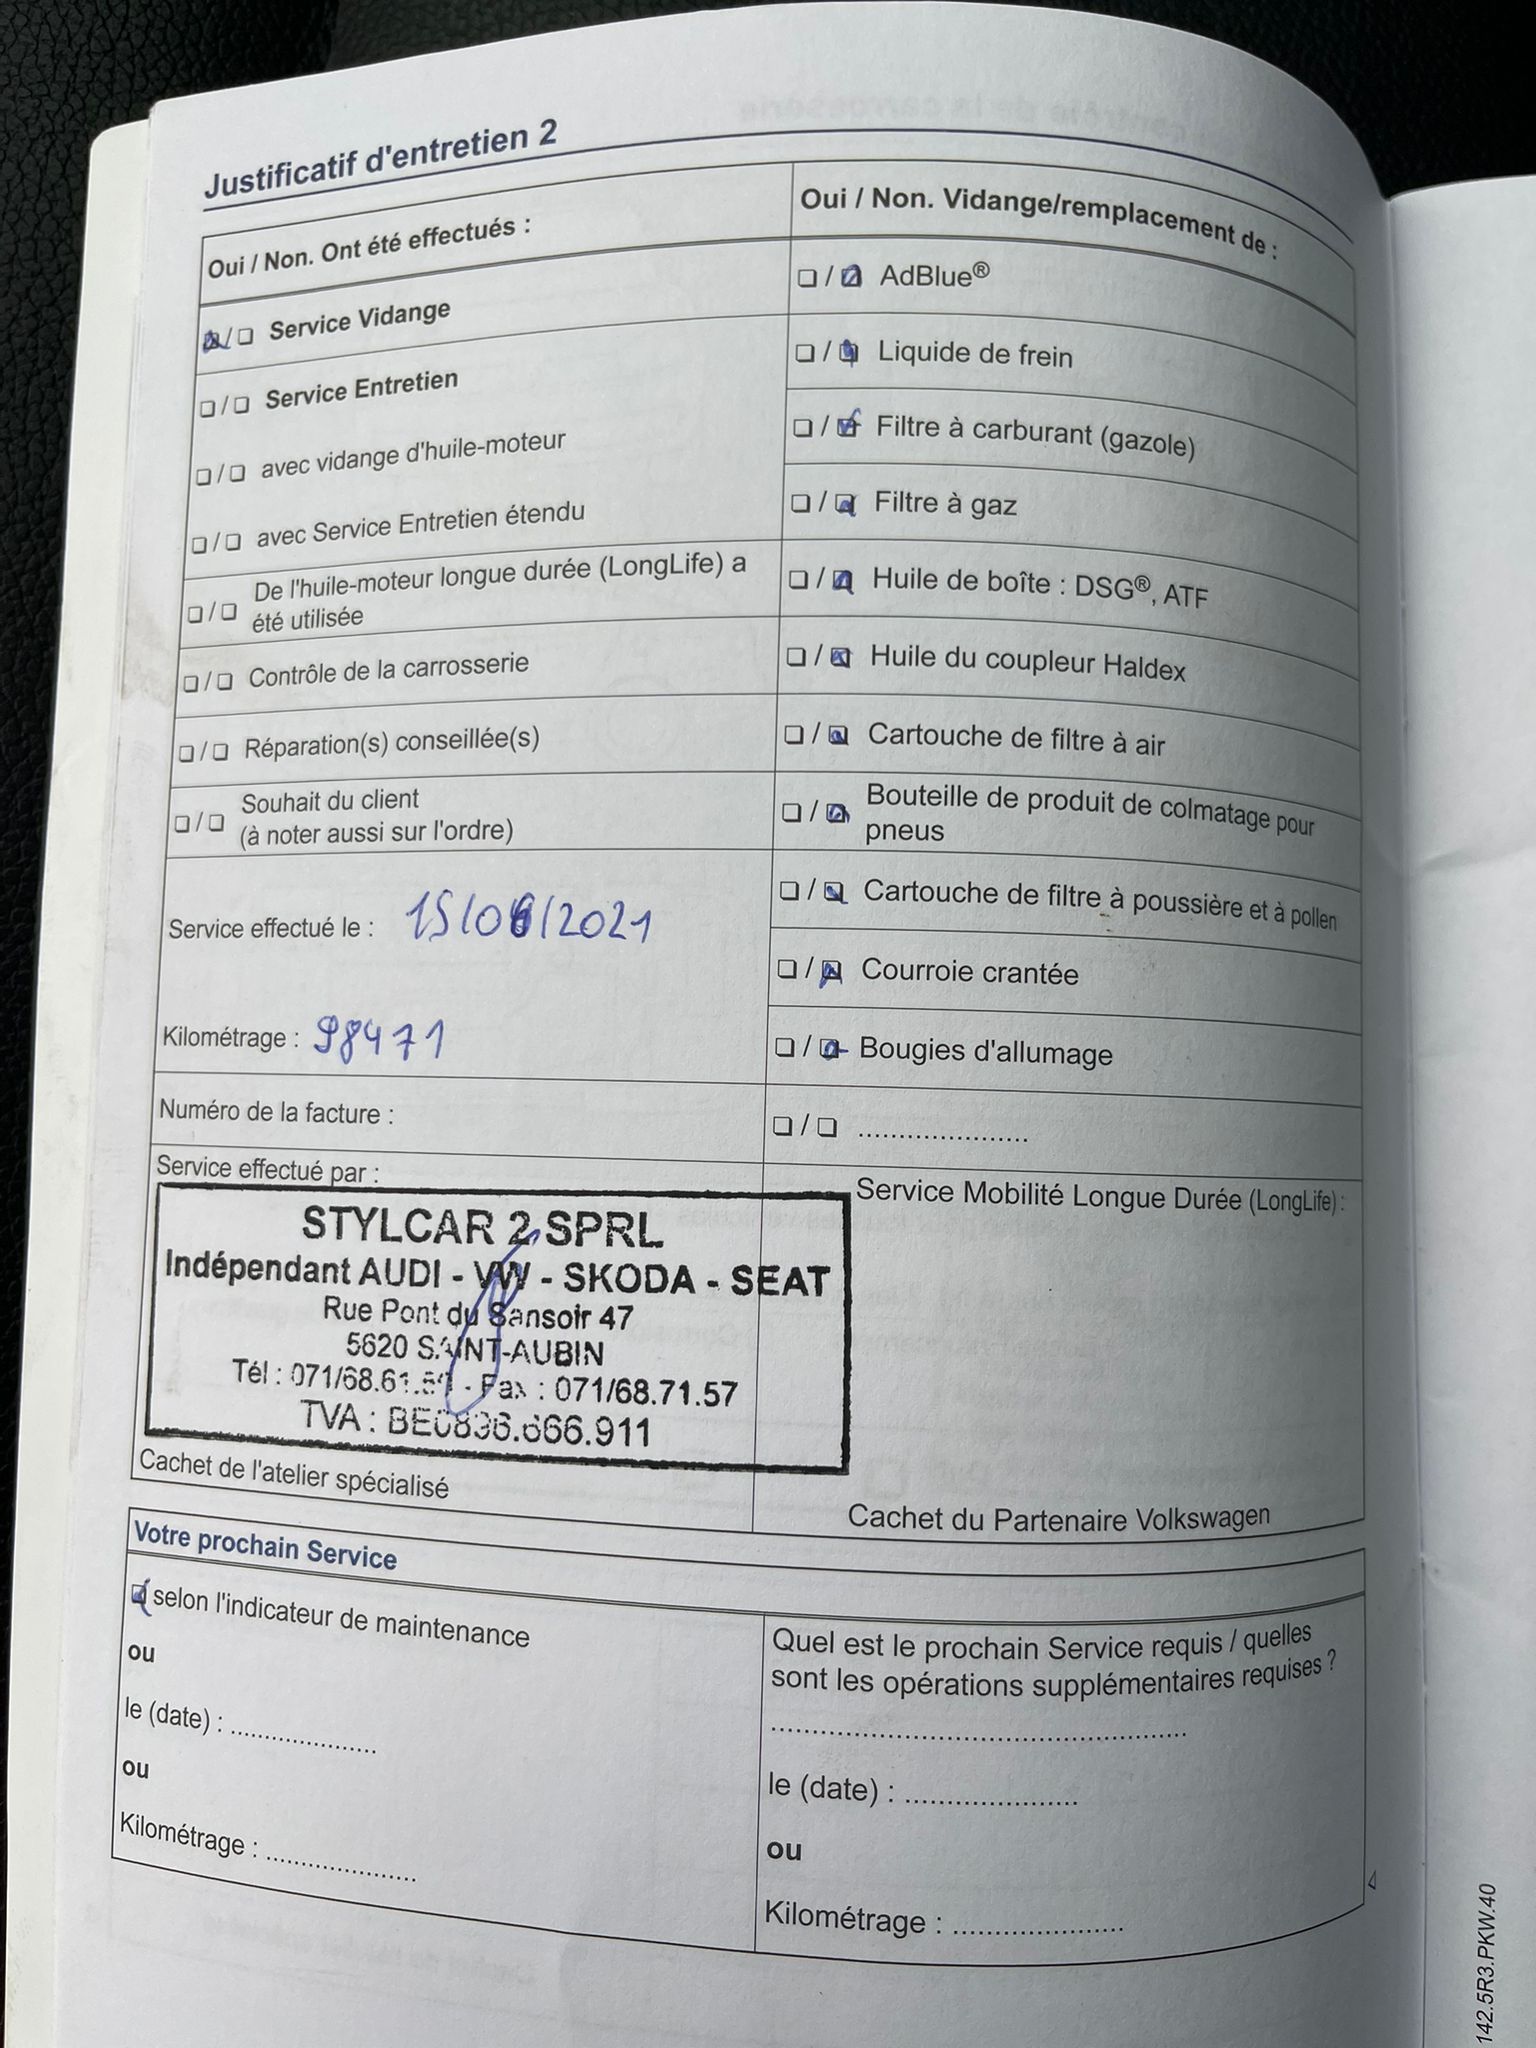 Justificatif d'entretien 2
Oui / Non. Ont été effectués :
☒ / ☐ Service Vidange
☐ / ☐ Service Entretien
☐ / ☐ avec vidange d'huile-moteur
☐ / ☐ avec Service Entretien étendu
☐ / ☐ De l'huile-moteur longue durée (LongLife) a
été utilisée
☐ / ☐ Contrôle de la carrosserie
☐ / ☐ Réparation(s) conseillée(s)
☐ / ☐ Souhait du client
(à noter aussi sur l'ordre)
Service effectué le : 15/06/2021
Kilométrage : 98471
Numéro de la facture :
Service effectué par :
STYLCAR 2 SPRL
Indépendant AUDI - VW - SKODA - SEAT
Rue Pont du Sansoir 47
5620 SAINT-AUBIN
Tél : - Fax : 071/68.71.57
TVA :
Cachet de l'atelier spécialisé
Oui / Non. Vidange/remplacement de :
☐ / ☒ AdBlue®
☐ / ☒ Liquide de frein
☐ / ☒ Filtre à carburant (gazole)
☐ / ☒ Filtre à gaz
☐ / ☒ Huile de boîte : DSG®, ATF
☐ / ☒ Huile du coupleur Haldex
☐ / ☒ Cartouche de filtre à air
☐ / ☒ Bouteille de produit de colmatage pour
pneus
☐ / ☒ Cartouche de filtre à poussière et à pollen
☐ / ☒ Courroie crantée
☐ / ☒ Bougies d'allumage
☐ / ☐ ......................
Service Mobilité Longue Durée (LongLife) :
Cachet du Partenaire Volkswagen
Votre prochain Service
☒ selon l'indicateur de maintenance
ou
le (date) : ......................
ou
Kilométrage : ......................
Quel est le prochain Service requis / quelles
sont les opérations supplémentaires requises ?
......................................................
le (date) : ......................
ou
Kilométrage : ......................
142.5R3.PKW.40